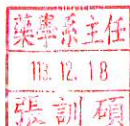 藥學系主任
113.12.18
張訓碩